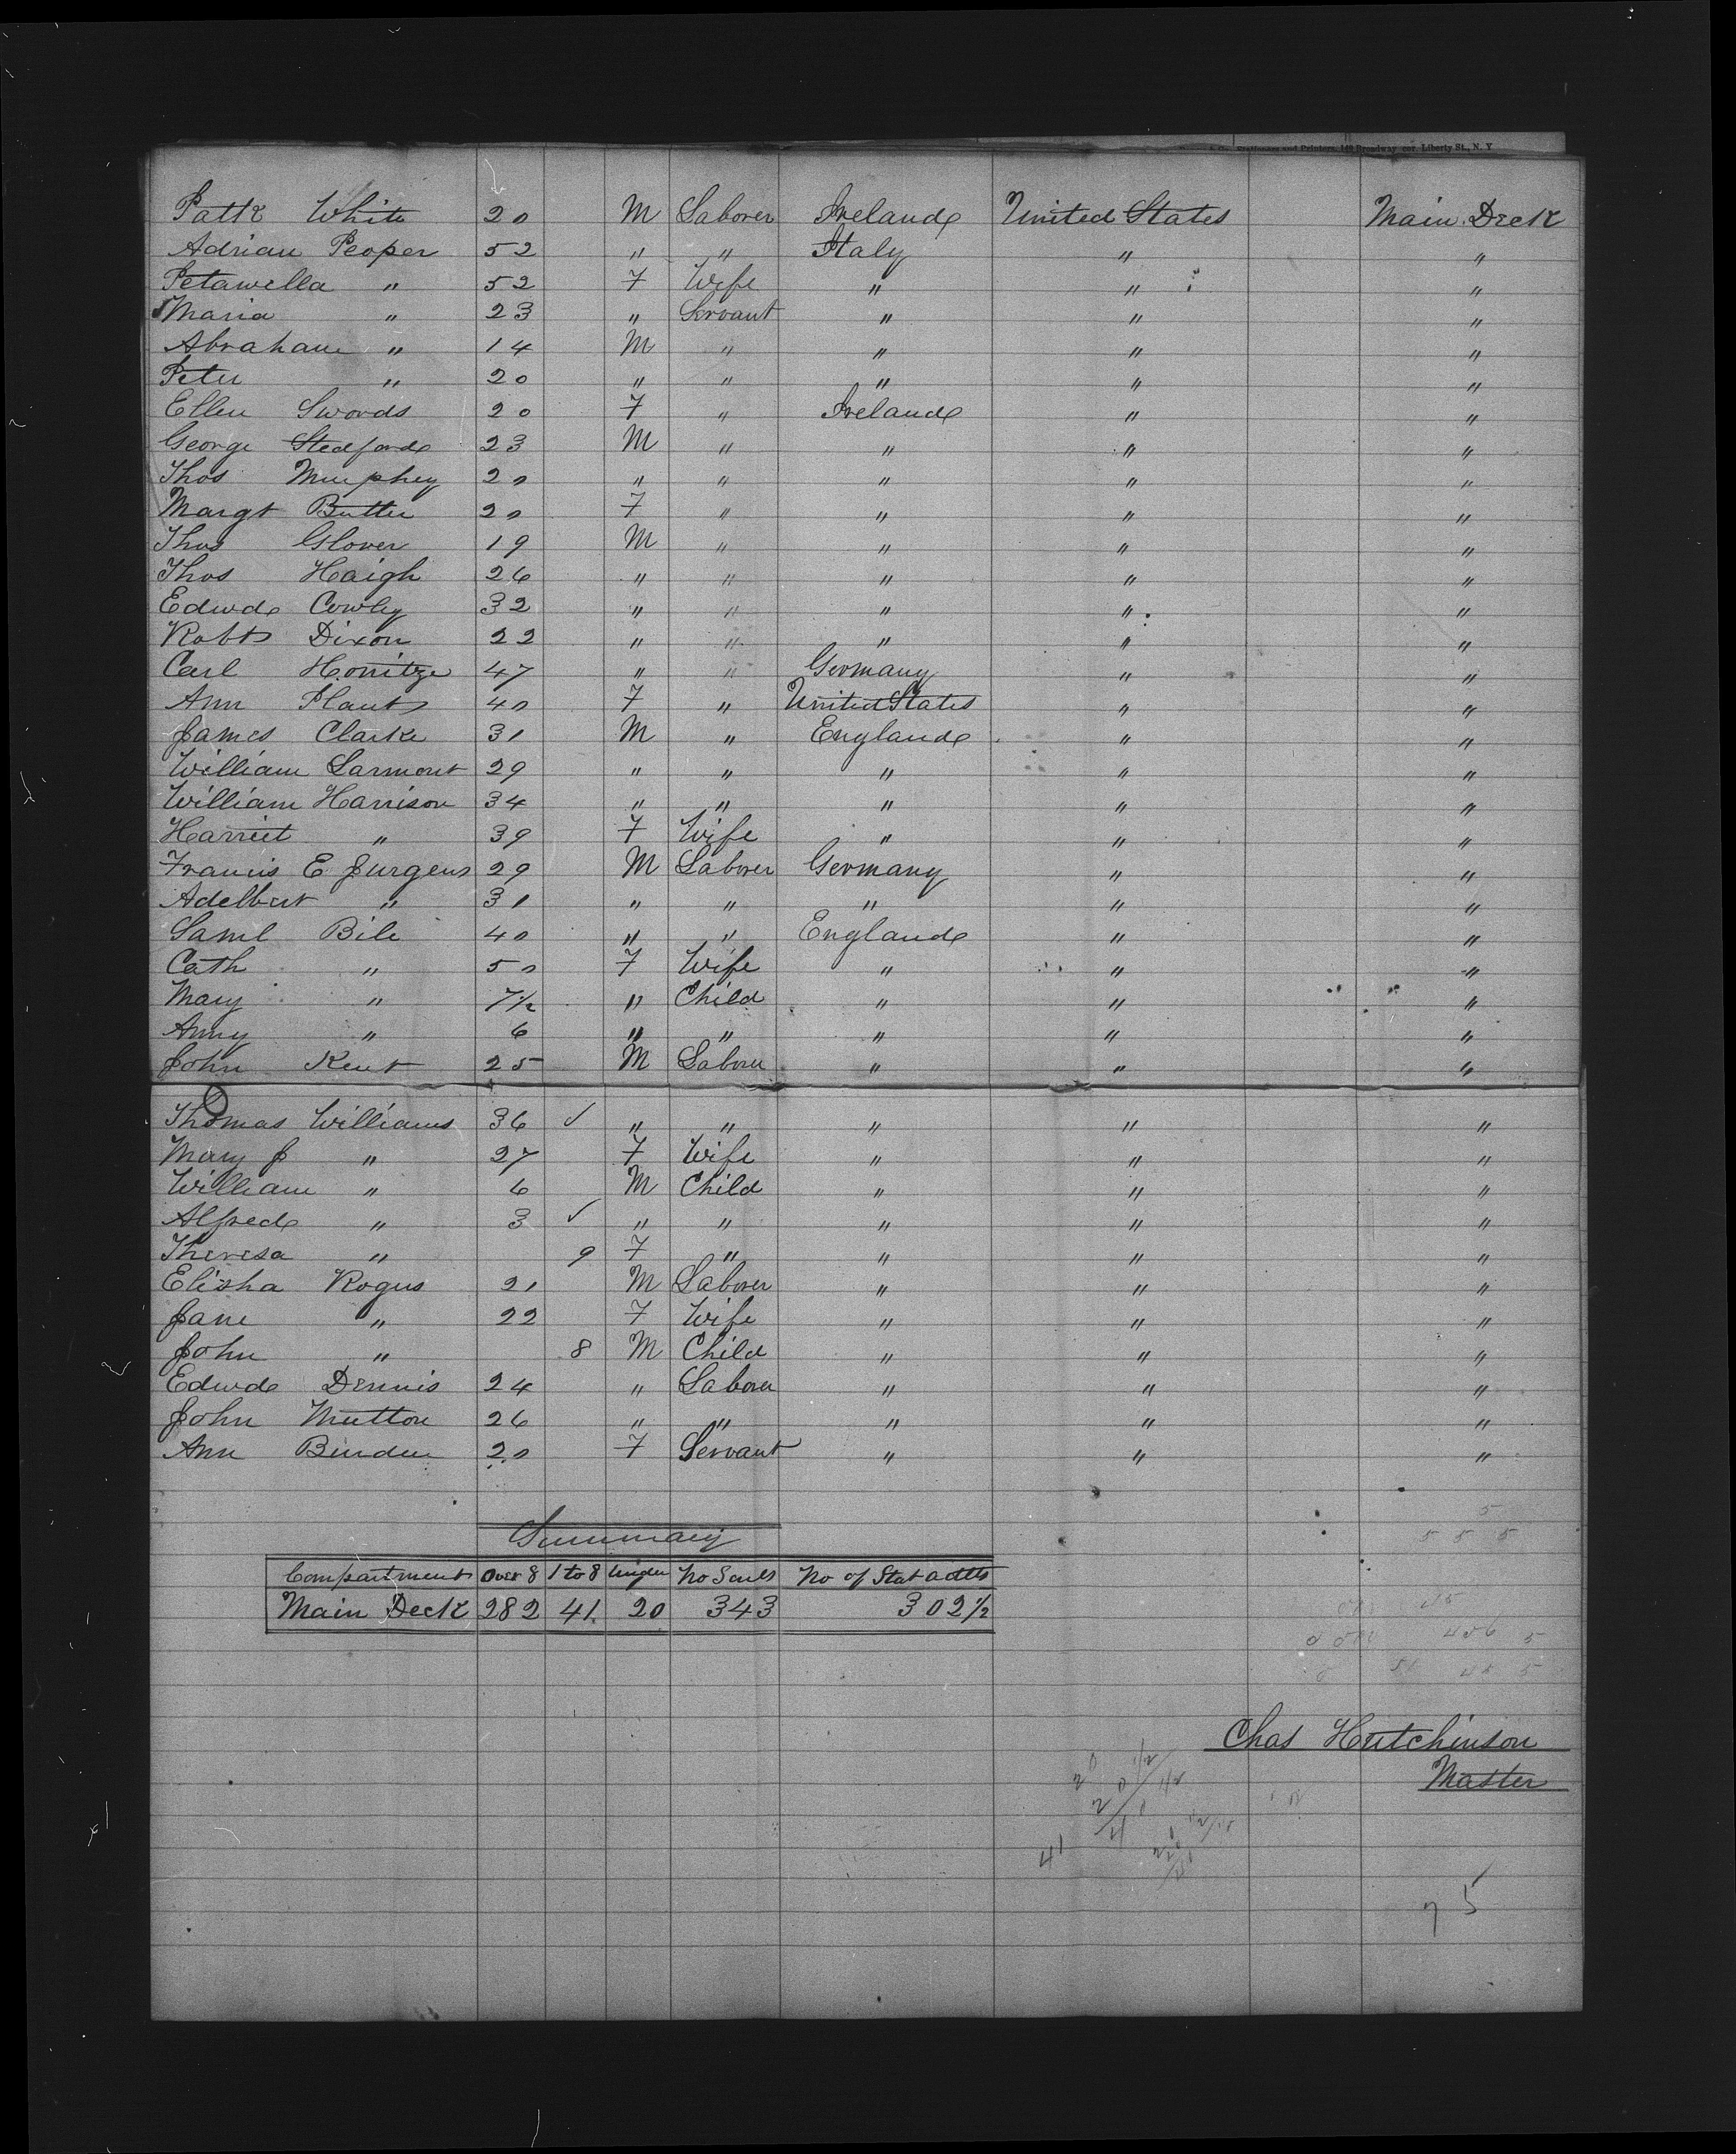 Stationers and Printers, 169 Broadway, cor. Liberty St., N. Y.
Patk White 20 M Laborer Ireland United States Main Deck
Adrian Peoper 52 " " Italy " "
Petawella " 52 F Wife " " "
Maria " 23 " Servant " " "
Abraham " 14 M " " " "
Peter " 20 " " " " "
Ellen Swords 20 F " Ireland " "
George Stedford 23 M " " " "
Thos Murphey 20 " " " " "
Margt Butler 20 F " " " "
Thos Glover 19 M " " " "
Thos Haigh 26 " " " " "
Edwd Cowley 32 " " " " "
Robt Dixon 22 " " " " "
Carl Honitze 47 " " Germany " "
Ann Plant 40 F " United States " "
James Clarke 31 M " England " "
William Larmont 29 " " " " "
William Harrison 34 " " " " "
Harriet " 39 F Wife " " "
Francis E Jurgens 29 M Laborer Germany " "
Adelbert " 31 " " " " "
Saml Bile 40 " " England " "
Cath " 50 F Wife " " "
Mary " 7½ " Child " " "
Amy " 6 " " " " "
John Kent 25 M Laborer " " "
Thomas Williams 36 ✓ " " " " "
Mary J " 27 F Wife " " "
William " 6 M Child " " "
Alfred " 3 ✓ " " " " "
Theresa " 9 F " " " "
Elisha Rogers 21 M Laborer " " "
Jane " 22 F Wife " " "
John " 8 M Child " " "
Edwd Dennis 24 " Laborer " " "
John Mutton 26 " " " " "
Ann Binden 20 F Servant " " "
Summary
Compartment Over 8 1 to 8 Under No Souls No of Stat adlts
Main Deck 282 41 20 343 302½
Chas Hutchinson
Master
41
75